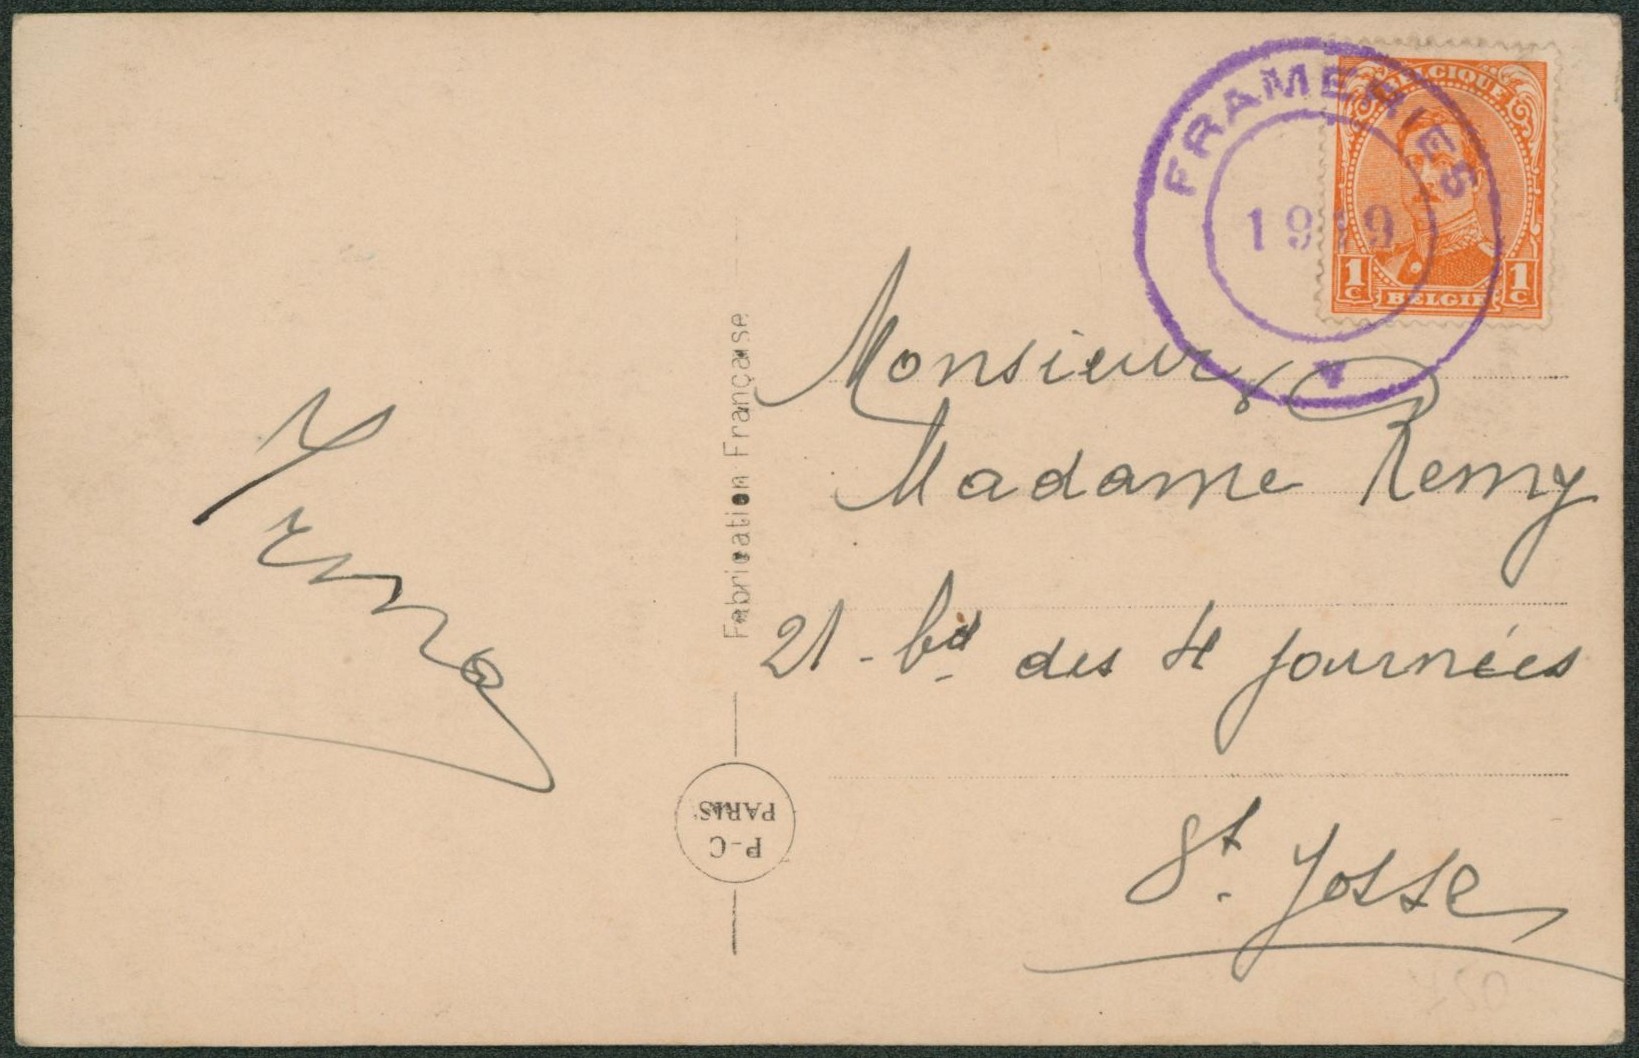 FRAMERIES
1919
BELGIQUE
1C BELGIE 1C
Irma
Fabrication Française
P-C
PARIS
Monsieur &
Madame Remy
21 - bd des 4 journées
St. Josse